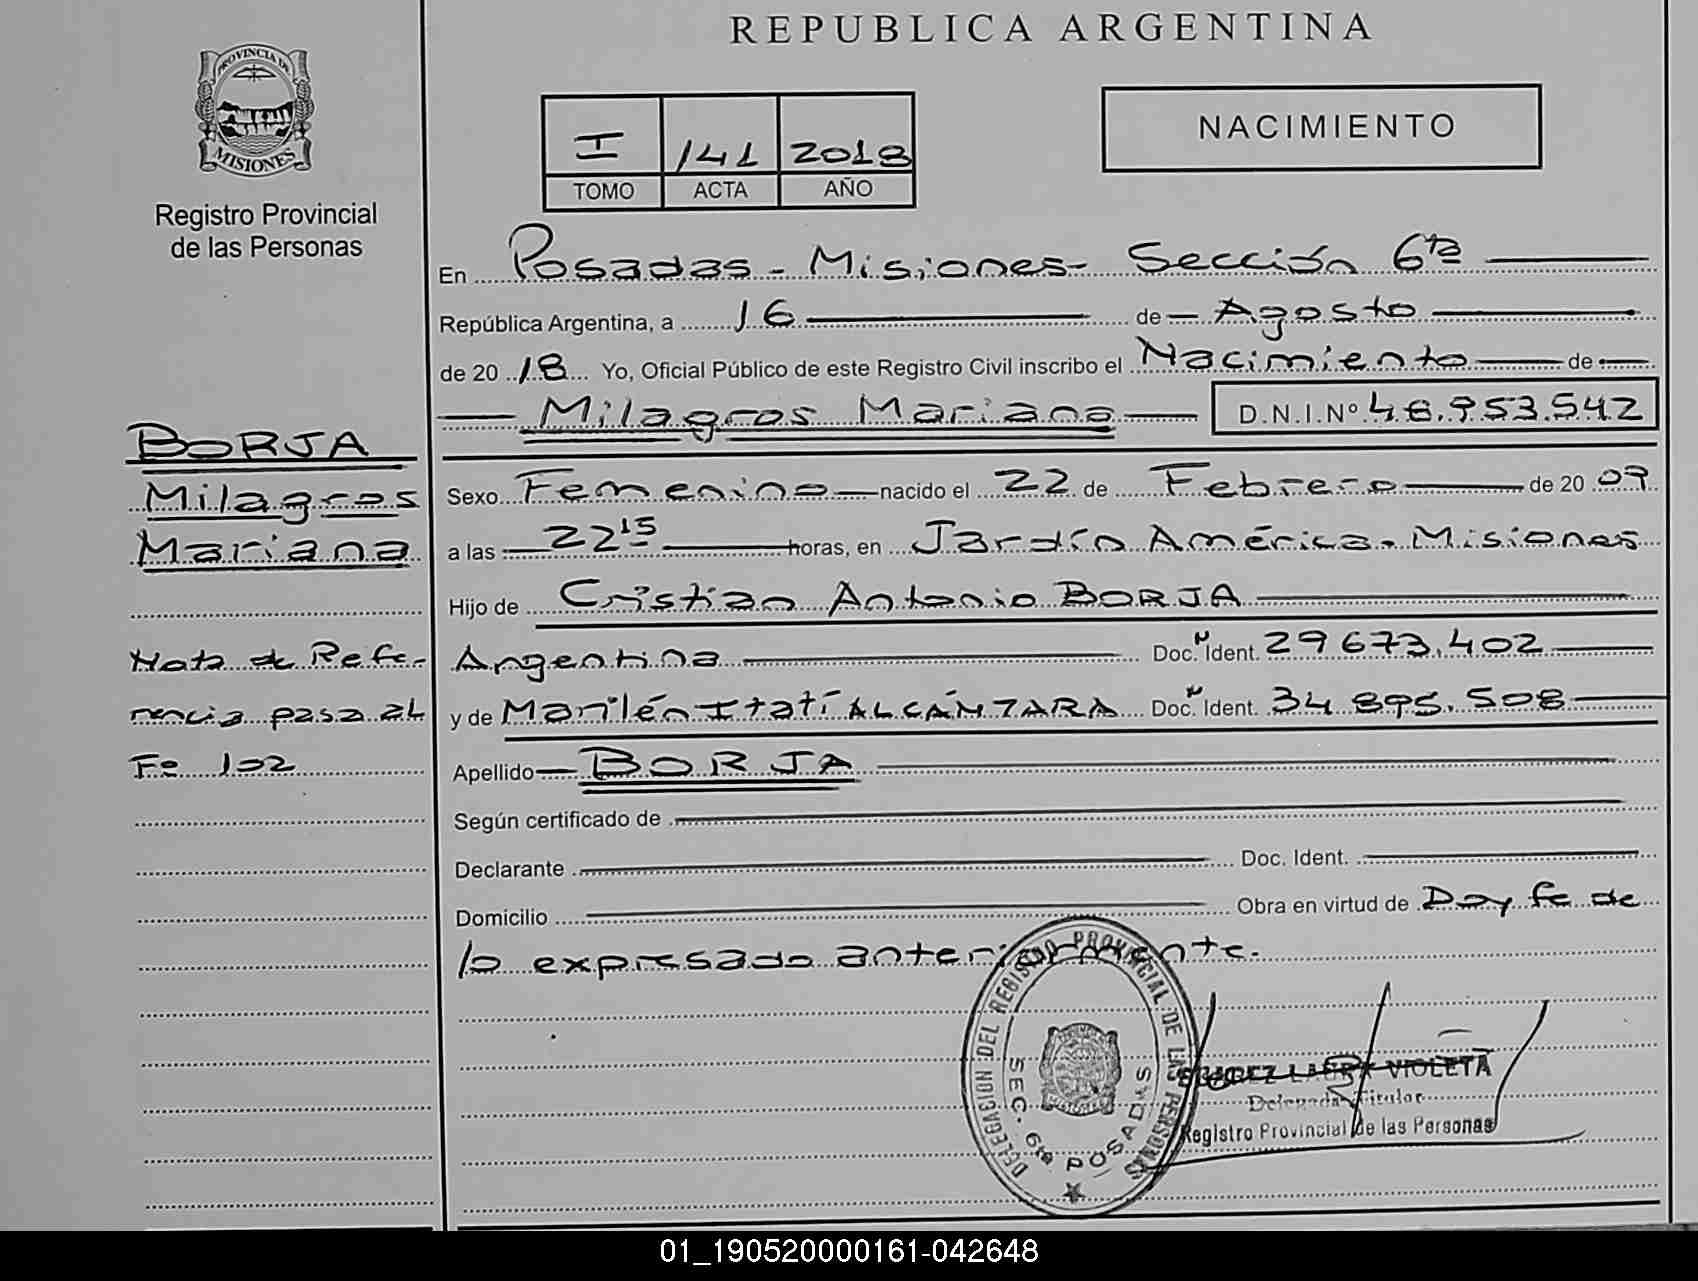 REPUBLICA ARGENTINA
PROVINCIA DE
MISIONES
Registro Provincial
de las Personas
I 141 2018
TOMO ACTA AÑO
NACIMIENTO
En Posadas - Misiones - Sección 6ta
República Argentina, a 16 de Agosto
de 2018 Yo, Oficial Público de este Registro Civil inscribo el Nacimiento de
Milagros Mariana D.N.I.Nº 48.953.542
BORJA
Milagros
Mariana
Nota de Refe-
rencia pasa al
Fº 102
Sexo Femenino nacido el 22 de Febrero de 2009
a las 22 15 horas, en Jardín América. Misiones
Hijo de Cristian Antonio BORJA
Argentina Doc. N Ident. 29673.402
y de Marilén Itatí ALCÁNTARA Doc. N Ident. 34.895.508
Apellido BORJA
Según certificado de
Declarante Doc. Ident.
Domicilio Obra en virtud de Doy fe de
lo expresado anteriormente.
DELEGACION DEL REGISTRO PROVINCIAL DE LAS PERSONAS
SEC. 6ta POSADAS
LAURA VIOLETA
Delegada Titular
Registro Provincial de las Personas
01_190520000161-042648